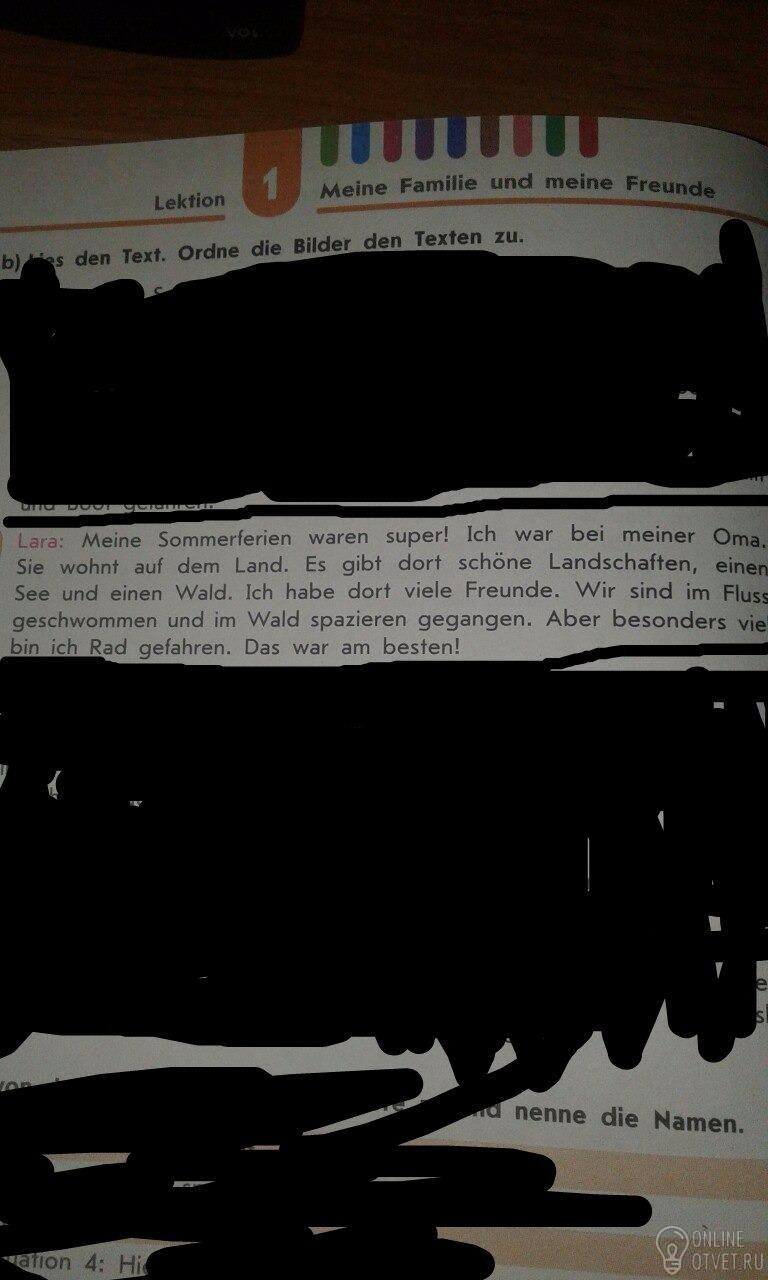 VOL
Lektion 1 Meine Familie und meine Freunde
b) Lies den Text. Ordne die Bilder den Texten zu.
und Boot gefahren.
Lara: Meine Sommerferien waren super! Ich war bei meiner Oma.
Sie wohnt auf dem Land. Es gibt dort schöne Landschaften, einen
See und einen Wald. Ich habe dort viele Freunde. Wir sind im Fluss
geschwommen und im Wald spazieren gegangen. Aber besonders viel
bin ich Rad gefahren. Das war am besten!
nenne die Namen.
4:
ONLINE
OTVET.RU